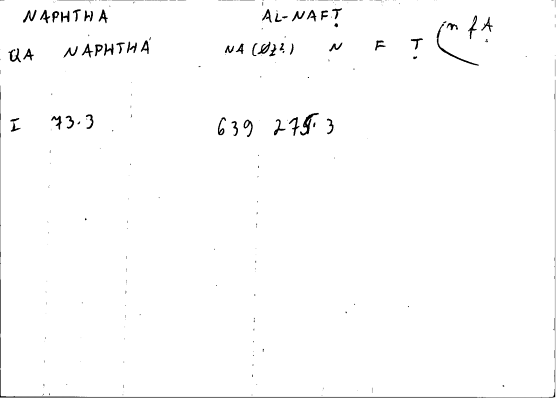 NAPHTHA AL-NAFṬ
QA NAPHTHA NA N F Ṭ
I 73.3 639 275.3